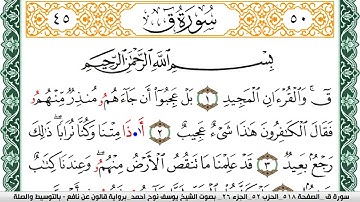 ٤٥ سُورَةُ ق ٥٠
بِسْمِ اللَّهِ الرَّحْمَٰنِ الرَّحِيمِ
قٓ ۚ وَالْقُرْءَانِ الْمَجِيدِ ١ بَلْ عَجِبُوٓاْ أَن جَآءَهُمُۥ مُنذِرٌ مِّنْهُمُۥ
فَقَالَ الْكَٰفِرُونَ هَٰذَا شَےْءٌ عَجِيبٌ ٢ أَ•ذَا مِتْنَا وَكُنَّا تُرَاباً ۖ ذَٰلِكَ
رَجْعُۢ بَعِيدٌ ٣ قَدْ عَلِمْنَا مَا تَنقُصُ الْأَرْضُ مِنْهُمُۥ ۖ وَعِندَنَا كِتَٰبٌ
سورة ق - الصفحة ٥١٨ـ الحزب ٥٢ ـ الجزء ٢٦ ـ بصوت الشيخ يوسف نوح احمد برواية قالون عن نافع - بالتوسيط والصلة